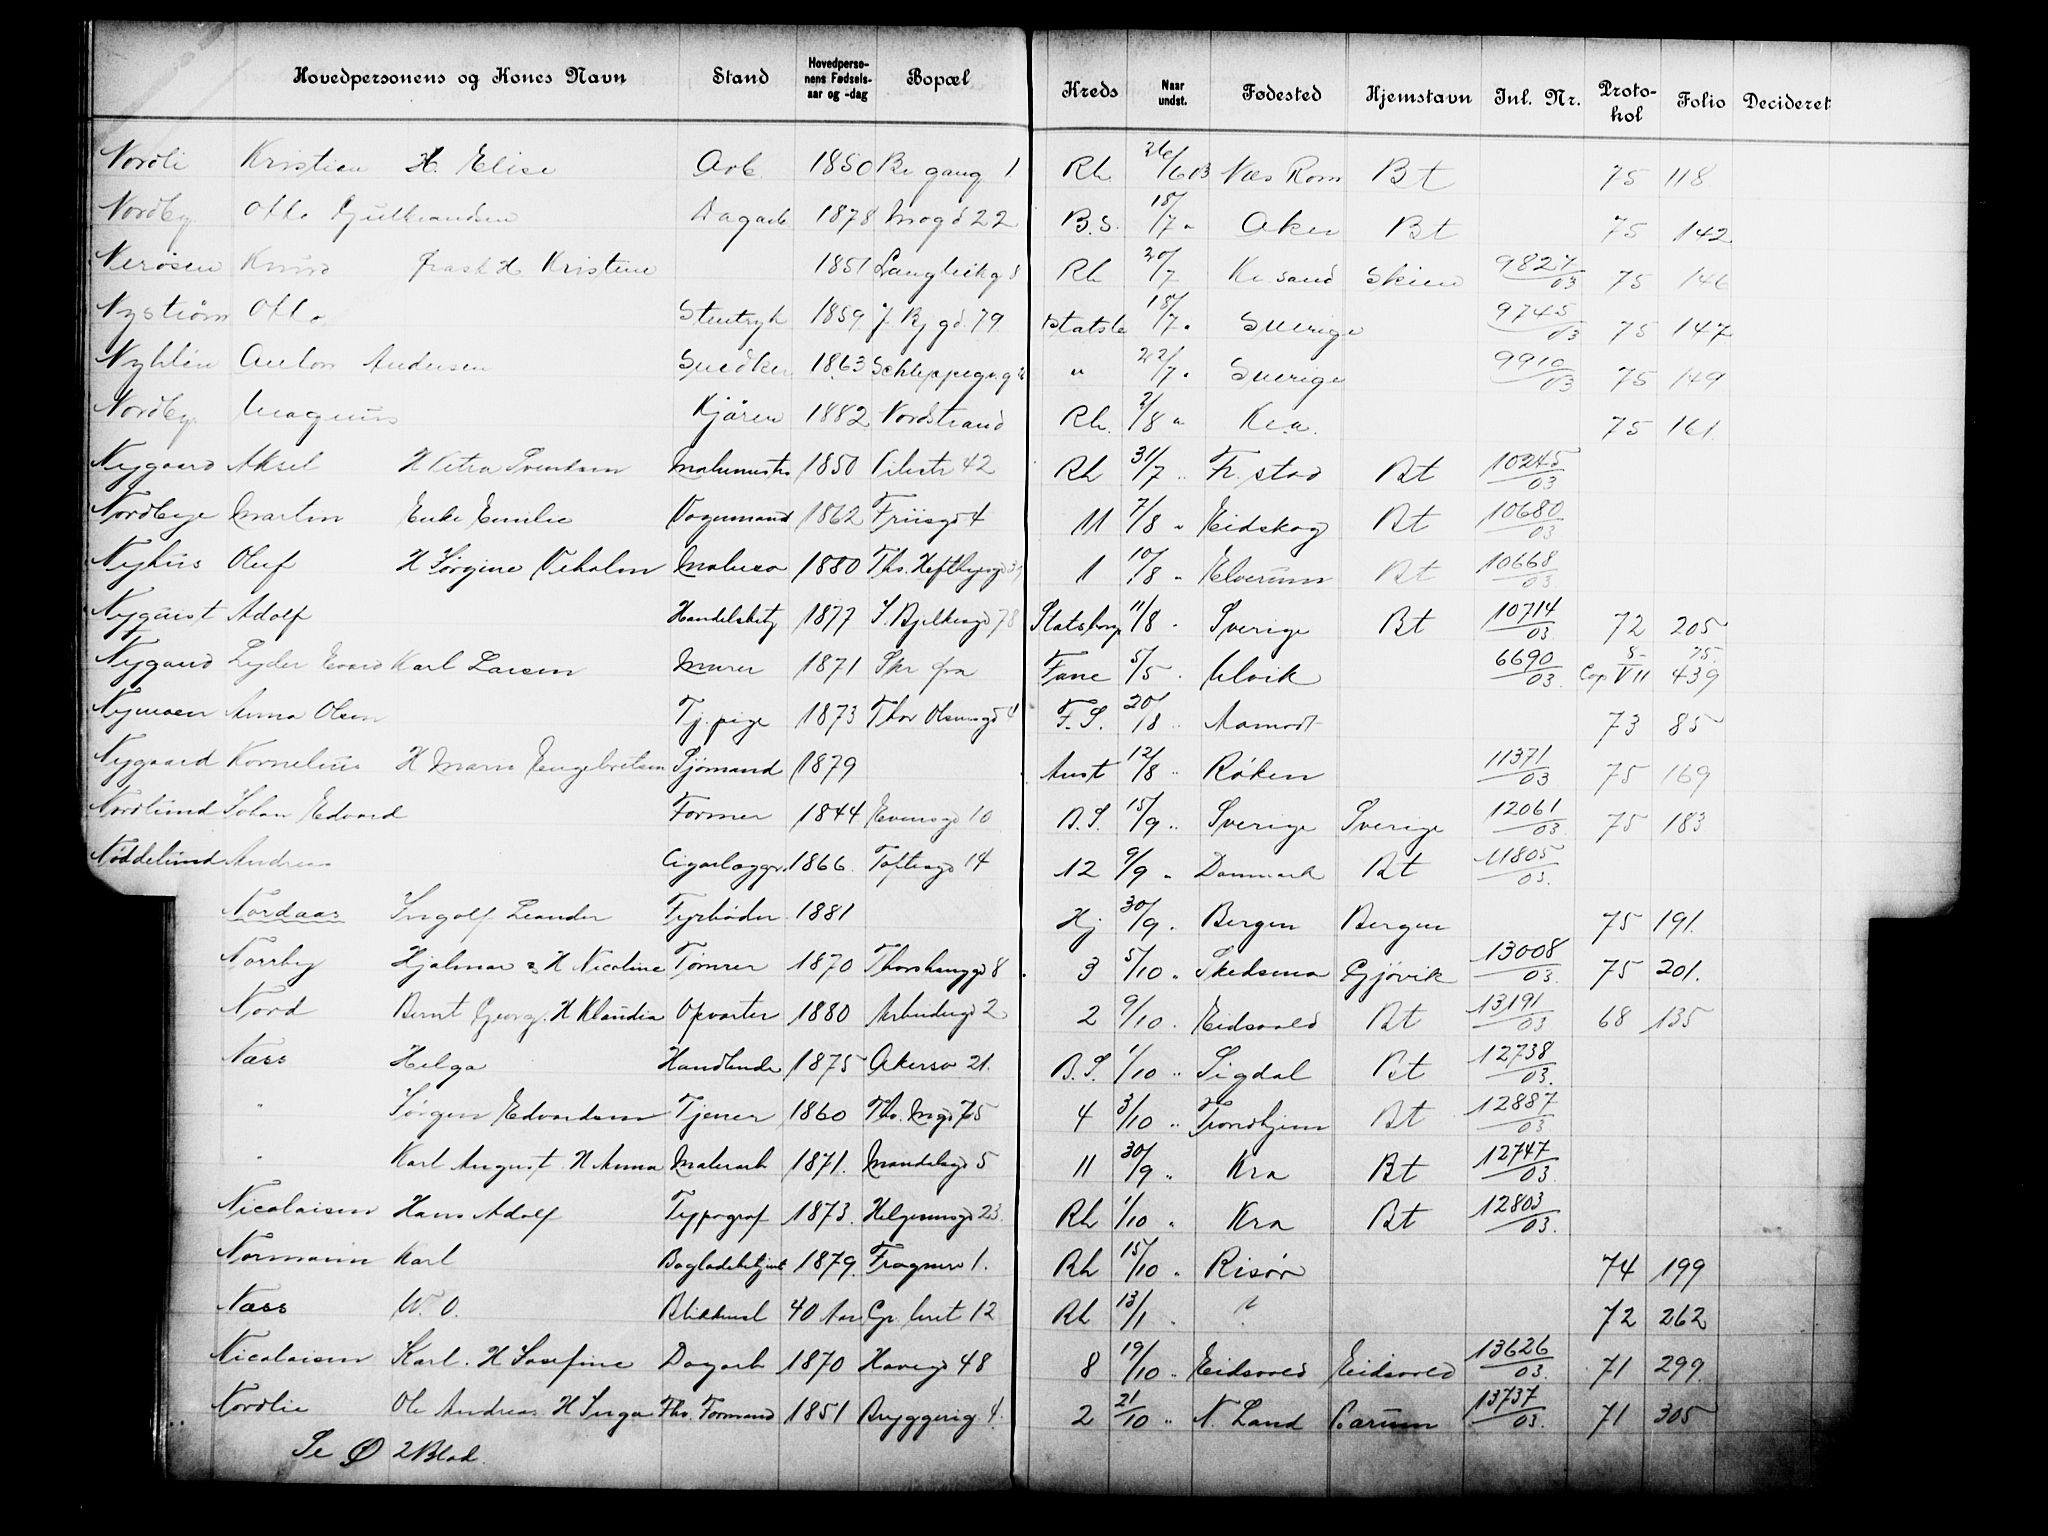 Hovedpersonens og Kones Navn Stand Hovedpersonens Fødselsaar og -dag Bopæl Kreds Naar undst. Fødested Hjemstavn Inl. Nr. Protokol Folio Decideret
Nordli Kristian H. Elise Arb. 1850 gang 1 Rh. 26/6 03 Næs Rom Bt 75 118
Nordby Otto Gulbrandsen Dagarb 1878 22 B.S. 18/7 " Aker Bt 75 142
Nerøsen Knud frask H Kristine 1851 Langleikg 8 Rh 20/7 Kr sand Skien 9827/03 75 146
Nystrøm Otto Stentryk 1859 J. Bj gd. 79 Statsb 18/7 " Sverige 9745/03 75 147
Nyhlén Anton Andersen Snedker 1863 Schleppegr. g " 22/7 " Sverige 9910/03 75 149
Nordby Magnus Kjører 1882 Nordstrand Rh. 2/8 " Kr.a. 75 161
Nygaard Aksel H Petra Svendsen Malermstr 1850 Pilestr 42 Rh 31/7 " Fr. stad Bt 10245/03
Nordbye Martin Enke Emilie Vognmand 1862 Friisgd 4 11 7/8 " Eidskog Bt 10680/03
Nyhus Oluf H Jørgine Veholm Malersv 1880 Ths. Heftyesgd 1 10/8 " Elverum Bt 10668/03
Nyquist Adolf Handelsbetj 1877 J. Bjelkesgd 78 Statsborg 11/8 " Sverige Bt 10714/03 72 205
Nygaard Lyder Evard Karl Larsen Murer 1871 Skr fra Fane 5/5 " Ulvik 6690/03 8- 75. Cop VII 439
Nymoen Anna Olsen Tj. pige 1873 Thor Olsensgd 4 F. S. 20/8 " Aamodt 73 85
Nygaard Kornelius H Maren Engebretsen Sjømand 1879 Aust 12/8 " Røken 11371/03 75 169
Nordlund Johan Edvard Former 1844 Evensgd 10 B.S. 15/9 " Sverige Sverige 12061/03 75 183
Nøddelund Andreas Cigarlægger 1866 Toftesgd 14 12 9/9 " Danmark Bt 11805/03.
Nordaas Ingolf Leander Fyrbøder 1881 Hj 30/9 " Bergen Bergen 75 191.
Norrby Hjalmar & H Nicoline Tømrer 1870 Thorshauggd 8 3 5/10 " Skedsmo Gjøvik 13008/03. 75 201.
Nord Bernt Georg. H Klaudia Opvarter 1880 Arbeidergd 2 2 9/10 " Eidsvold Bt 13191/03 68 135
Næss Helga Handlende 1875 Akersv 21. B.S. 1/10 " Sigdal Bt 12738/03.
" Jørgen Edvardsen Tjener 1860 Ths. Mgd 75 4 3/10 " Trondhjem Bt 12887/03
" Karl August. H Anna Malerarb 1871. Mandalsgd 5 11 30/9 " Kra Bt 12747/03.
Nicolaisen Hans Adolf Typograf 1873. Helgesensgd 23. Rh 1/10 " Kra Bt 12803/03.
Normann Karl Bogladebetjent 1879. Frognerv 1. Rh 15/10 " Risør 74 199
Næss W. O. Blikkensl 40 Aar Gr. leret 12 Rh 13/1 " ? 72 262
Nicolaisen Karl. H Josefine Dagarb 1870 Havegd 48 8 19/10 " Eidsvold Eidsvold 13626/03. 71 299.
Nordlie Ole Andreas H Inga Fhv. Formand 1851 Bryggerig 4. 2 21/10 " N. Land Bærum 13737/03. 71 305
Se Ø 2 Blad.